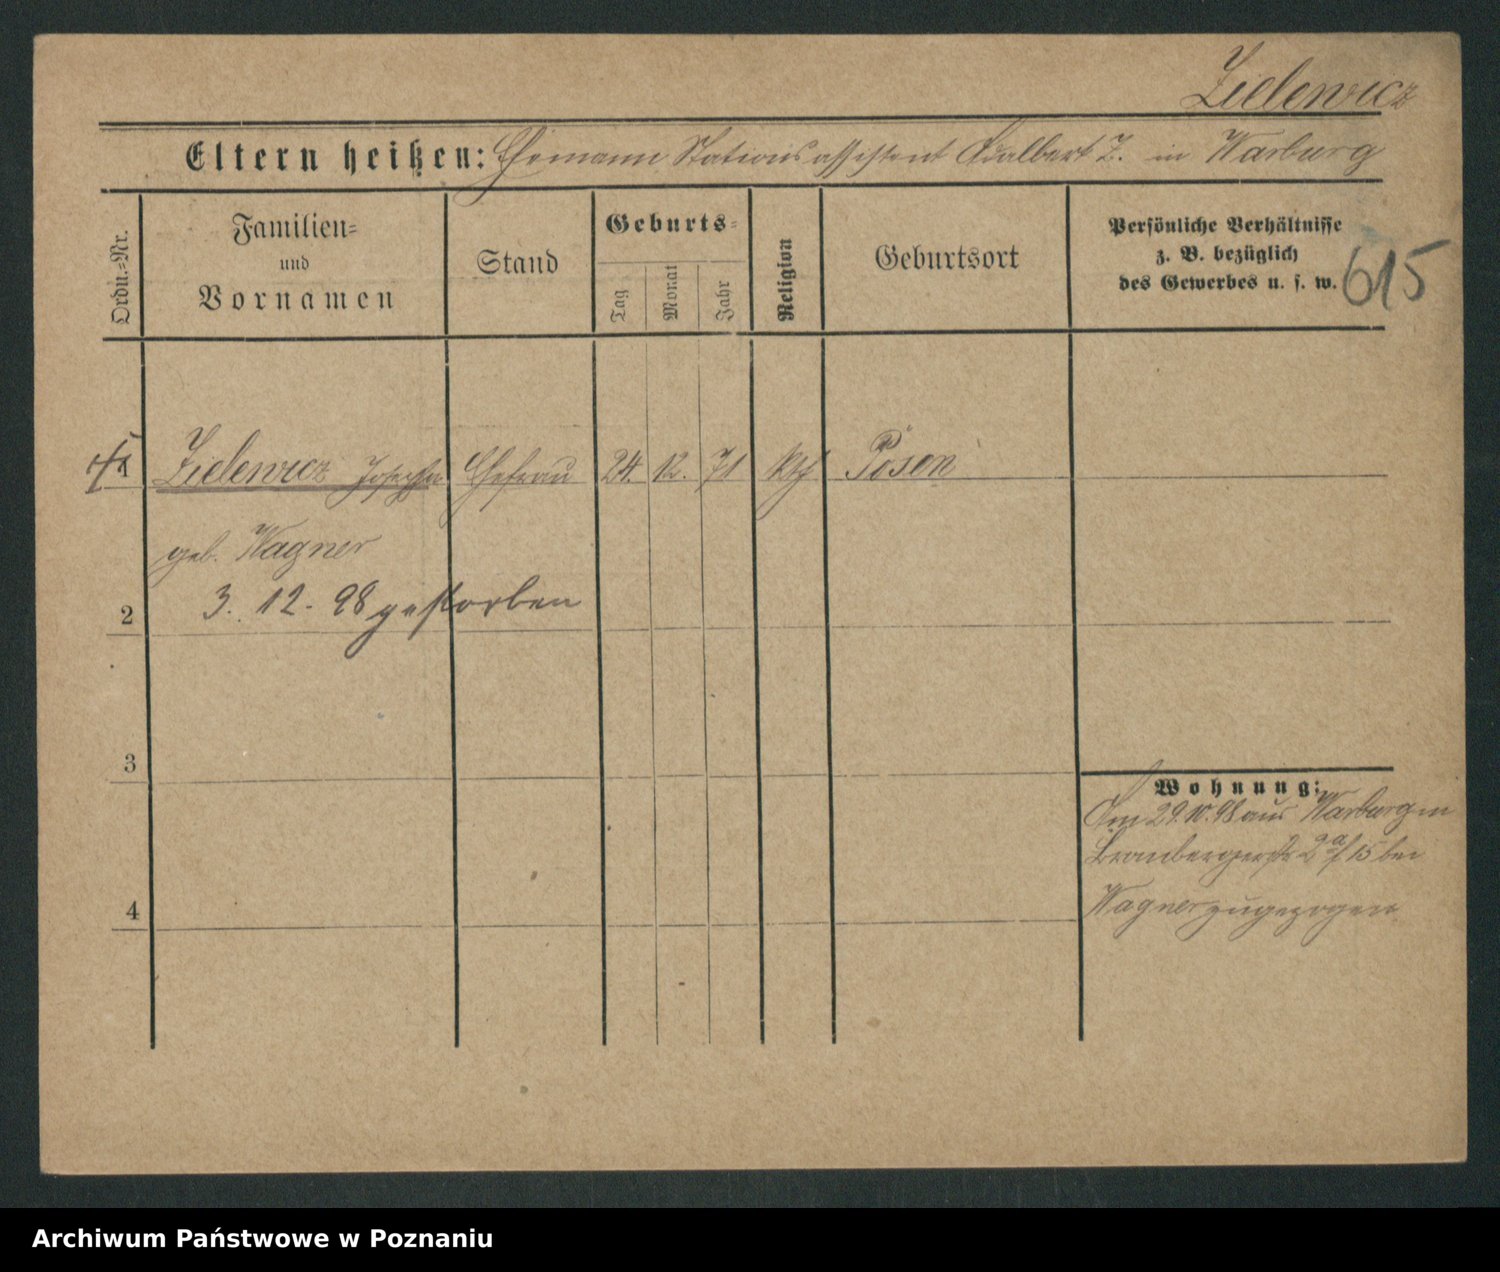 Zielewicz
Eltern heißen: Ehemann Stationsassistent Adalbert Z. in Warburg
Ordn.-Nr.
Familien-
und
Vornamen
Stand
Geburts-
Tag
Monat
Jahr
Religion
Geburtsort
Persönliche Verhältnisse
z. B. bezüglich
des Gewerbes u. s. w.
615
1 Zielewicz Josepha Ehefrau 24. 12. 71 kth Posen
geb. Wagner
3. 12. 98 gestorben
2
3
4
Wohnung:
Am 29.10.98 aus Warburg in
2a/15 bei
Wagner zugezogen
Archiwum Państwowe w Poznaniu